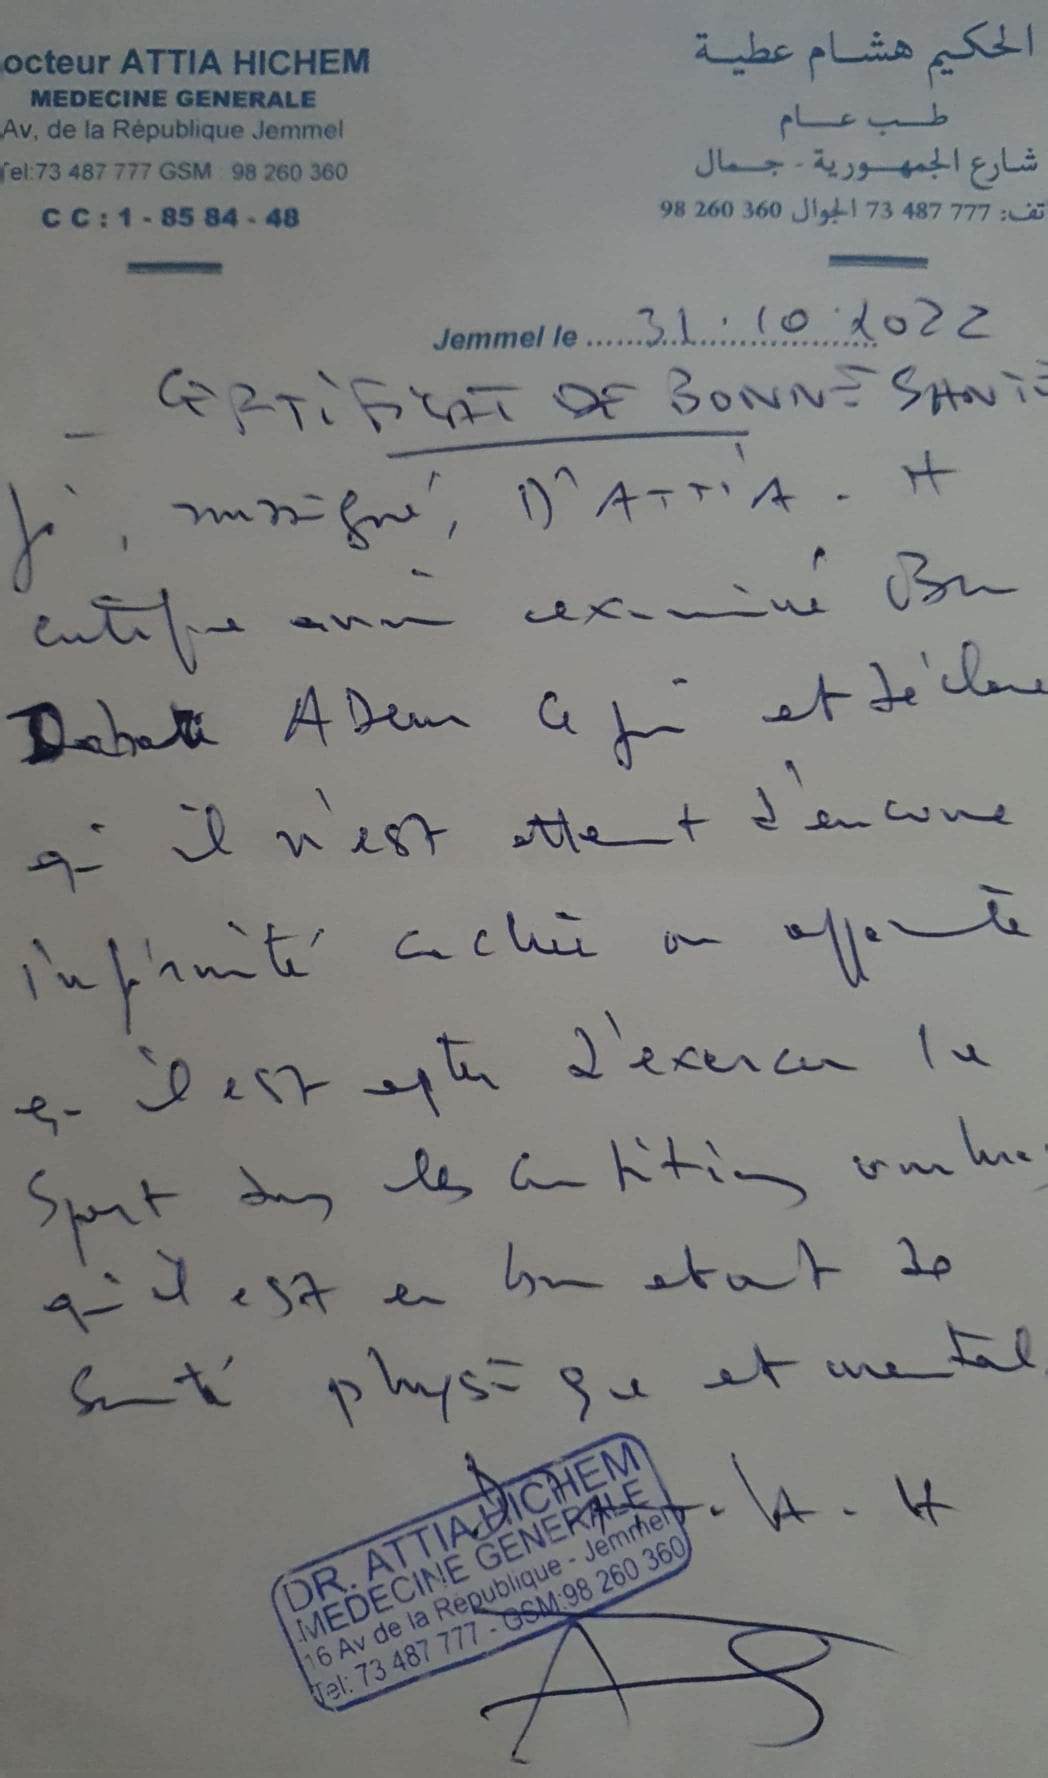 octeur ATTIA HICHEM
MEDECINE GENERALE
Av, de la République Jemmel
Tel:73 487 777 GSM : 98 260 360
C C : 1 - 85 84 - 48
الحكيم هشام عطية
طب عام
شارع الجمهورية - جمال
تف: 777 487 73 الجوال 360 260 98
Jemmel le ...... 31.10.2022
- CERTIFICAT DE BONNE SANTÉ
Je, soussigné, Dr ATTIA. H
certifie avoir examiné Ben
ADem ce jour et déclare
qu'il n'est atteint d'aucune
infirmité cachée ou apparente
qu'il est apte d'exercer le
Sport dans les conditions normales
qu'il est en bon etat de
Santé physique et mental
A. H
DR. ATTIA HICHEM
MEDECINE GENERALE
16 Av de la République - Jemmel
Tel: 73 487 777 - GSM:98 260 360